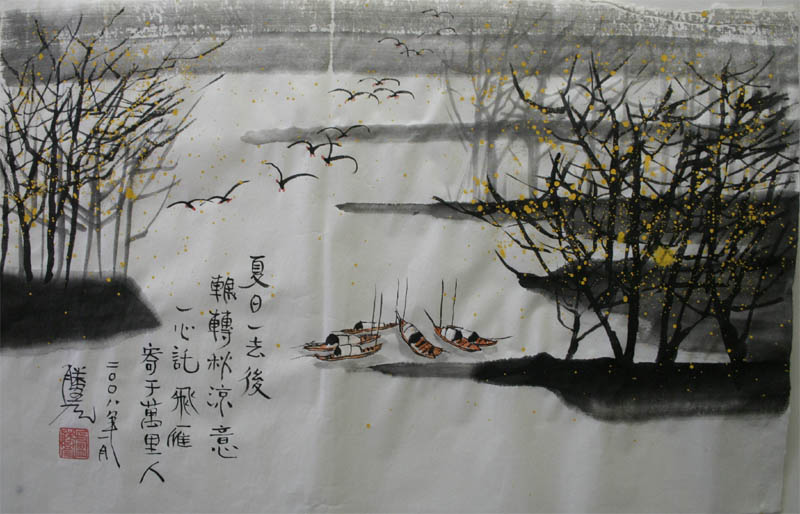 夏日一去後
輾轉秋涼意
一心託飛雁
寄于萬里人
二〇〇八年十一月